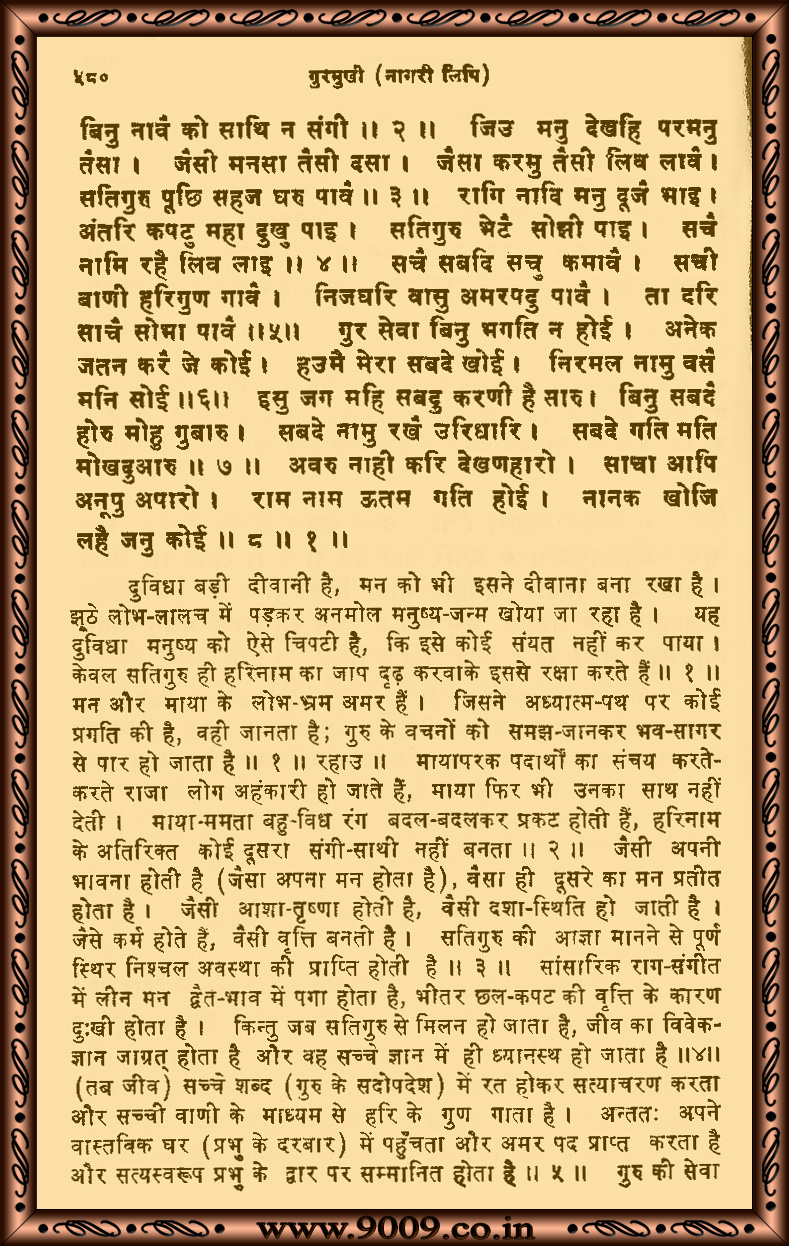 ५८० गुरमुखी (नागरी लिपि)
बिनु नावै को साथि न संगी ॥ २ ॥ जिउ मनु देखहि परमनु
तैसा । जैसी मनसा तैसी दसा । जैसा करमु तैसी लिव लावै ।
सतिगुरु पूछि सहज घरु पावै ॥ ३ ॥ रागि नादि मनु दूजै भाइ ।
अंतरि कपटु महा दुखु पाइ । सतिगुरु भेटै सोझी पाइ । सचै
नामि रहै लिव लाइ ॥ ४ ॥ सचै सबदि सचु कमावै । सची
बाणी हरिगुण गावै । निजघरि वासु अमरपदु पावै । ता दरि
साचै सोभा पावै ॥५॥ गुर सेवा बिनु भगति न होई । अनेक
जतन करै जे कोई । हउमै मेरा सबदे खोई । निरमल नामु वसै
मनि सोई ॥६॥ इसु जग महि सबदु करणी है सारु । बिनु सबदै
होरु मोहु गुबारु । सबदे नामु रखै उरिधारि । सबदे गति मति
मोखदुआरु ॥ ७ ॥ अवरु नाही करि देखणहारो । साचा आपि
अनूपु अपारो । राम नाम ऊतम गति होई । नानक खोजि
लहै जनु कोई ॥ ८ ॥ १ ॥
दुविधा बड़ी दीवानी है, मन को भी इसने दीवाना बना रखा है ।
झूठे लोभ-लालच में पड़कर अनमोल मनुष्य-जन्म खोया जा रहा है । यह
दुविधा मनुष्य को ऐसे चिपटी है, कि इसे कोई संयत नहीं कर पाया ।
केवल सतिगुरु ही हरिनाम का जाप दृढ़ करवाके इससे रक्षा करते हैं ॥ १ ॥
मन और माया के लोभ-भ्रम अमर हैं । जिसने अध्यात्म-पथ पर कोई
प्रगति की है, वही जानता है; गुरु के वचनों को समझ-जानकर भव-सागर
से पार हो जाता है ॥ १ ॥ रहाउ ॥ मायापरक पदार्थों का संचय करते-
करते राजा लोग अहंकारी हो जाते हैं, माया फिर भी उनका साथ नहीं
देती । माया-ममता बहु-विध रंग बदल-बदलकर प्रकट होती हैं, हरिनाम
के अतिरिक्त कोई दूसरा संगी-साथी नहीं बनता ॥ २ ॥ जैसी अपनी
भावना होती है (जैसा अपना मन होता है), वैसा ही दूसरे का मन प्रतीत
होता है । जैसी आशा-तृष्णा होती है, वैसी दशा-स्थिति हो जाती है ।
जैसे कर्म होते हैं, वैसी वृत्ति बनती है । सतिगुरु की आज्ञा मानने से पूर्ण
स्थिर निश्चल अवस्था की प्राप्ति होती है ॥ ३ ॥ सांसारिक राग-संगीत
में लीन मन द्वैत-भाव में पगा होता है, भीतर छल-कपट की वृत्ति के कारण
दुःखी होता है । किन्तु जब सतिगुरु से मिलन हो जाता है, जीव का विवेक-
ज्ञान जाग्रत् होता है और वह सच्चे ज्ञान में ही ध्यानस्थ हो जाता है ॥४॥
(तब जीव) सच्चे शब्द (गुरु के सदोपदेश) में रत होकर सत्याचरण करता
और सच्ची वाणी के माध्यम से हरि के गुण गाता है । अन्ततः अपने
वास्तविक घर (प्रभु के दरबार) में पहुँचता और अमर पद प्राप्त करता है
और सत्यस्वरूप प्रभु के द्वार पर सम्मानित होता है ॥ ५ ॥ गुरु की सेवा
www.9009.co.in